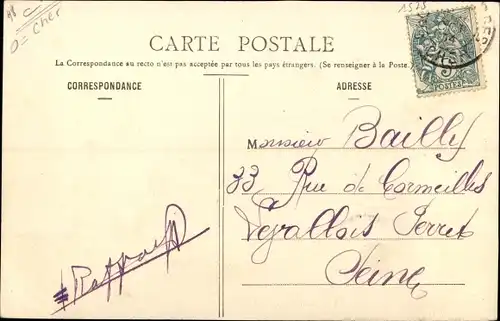 C
D=Cher
1523
CARTE POSTALE
La Correspondance au recto n'est pas acceptée par tous les pays étrangers. (Se renseigner à la Poste.)
CORRESPONDANCE
ADRESSE
POSTES
Monsieur Bailly
33 Rue de Cormeilles
Levallois Perret
Seine